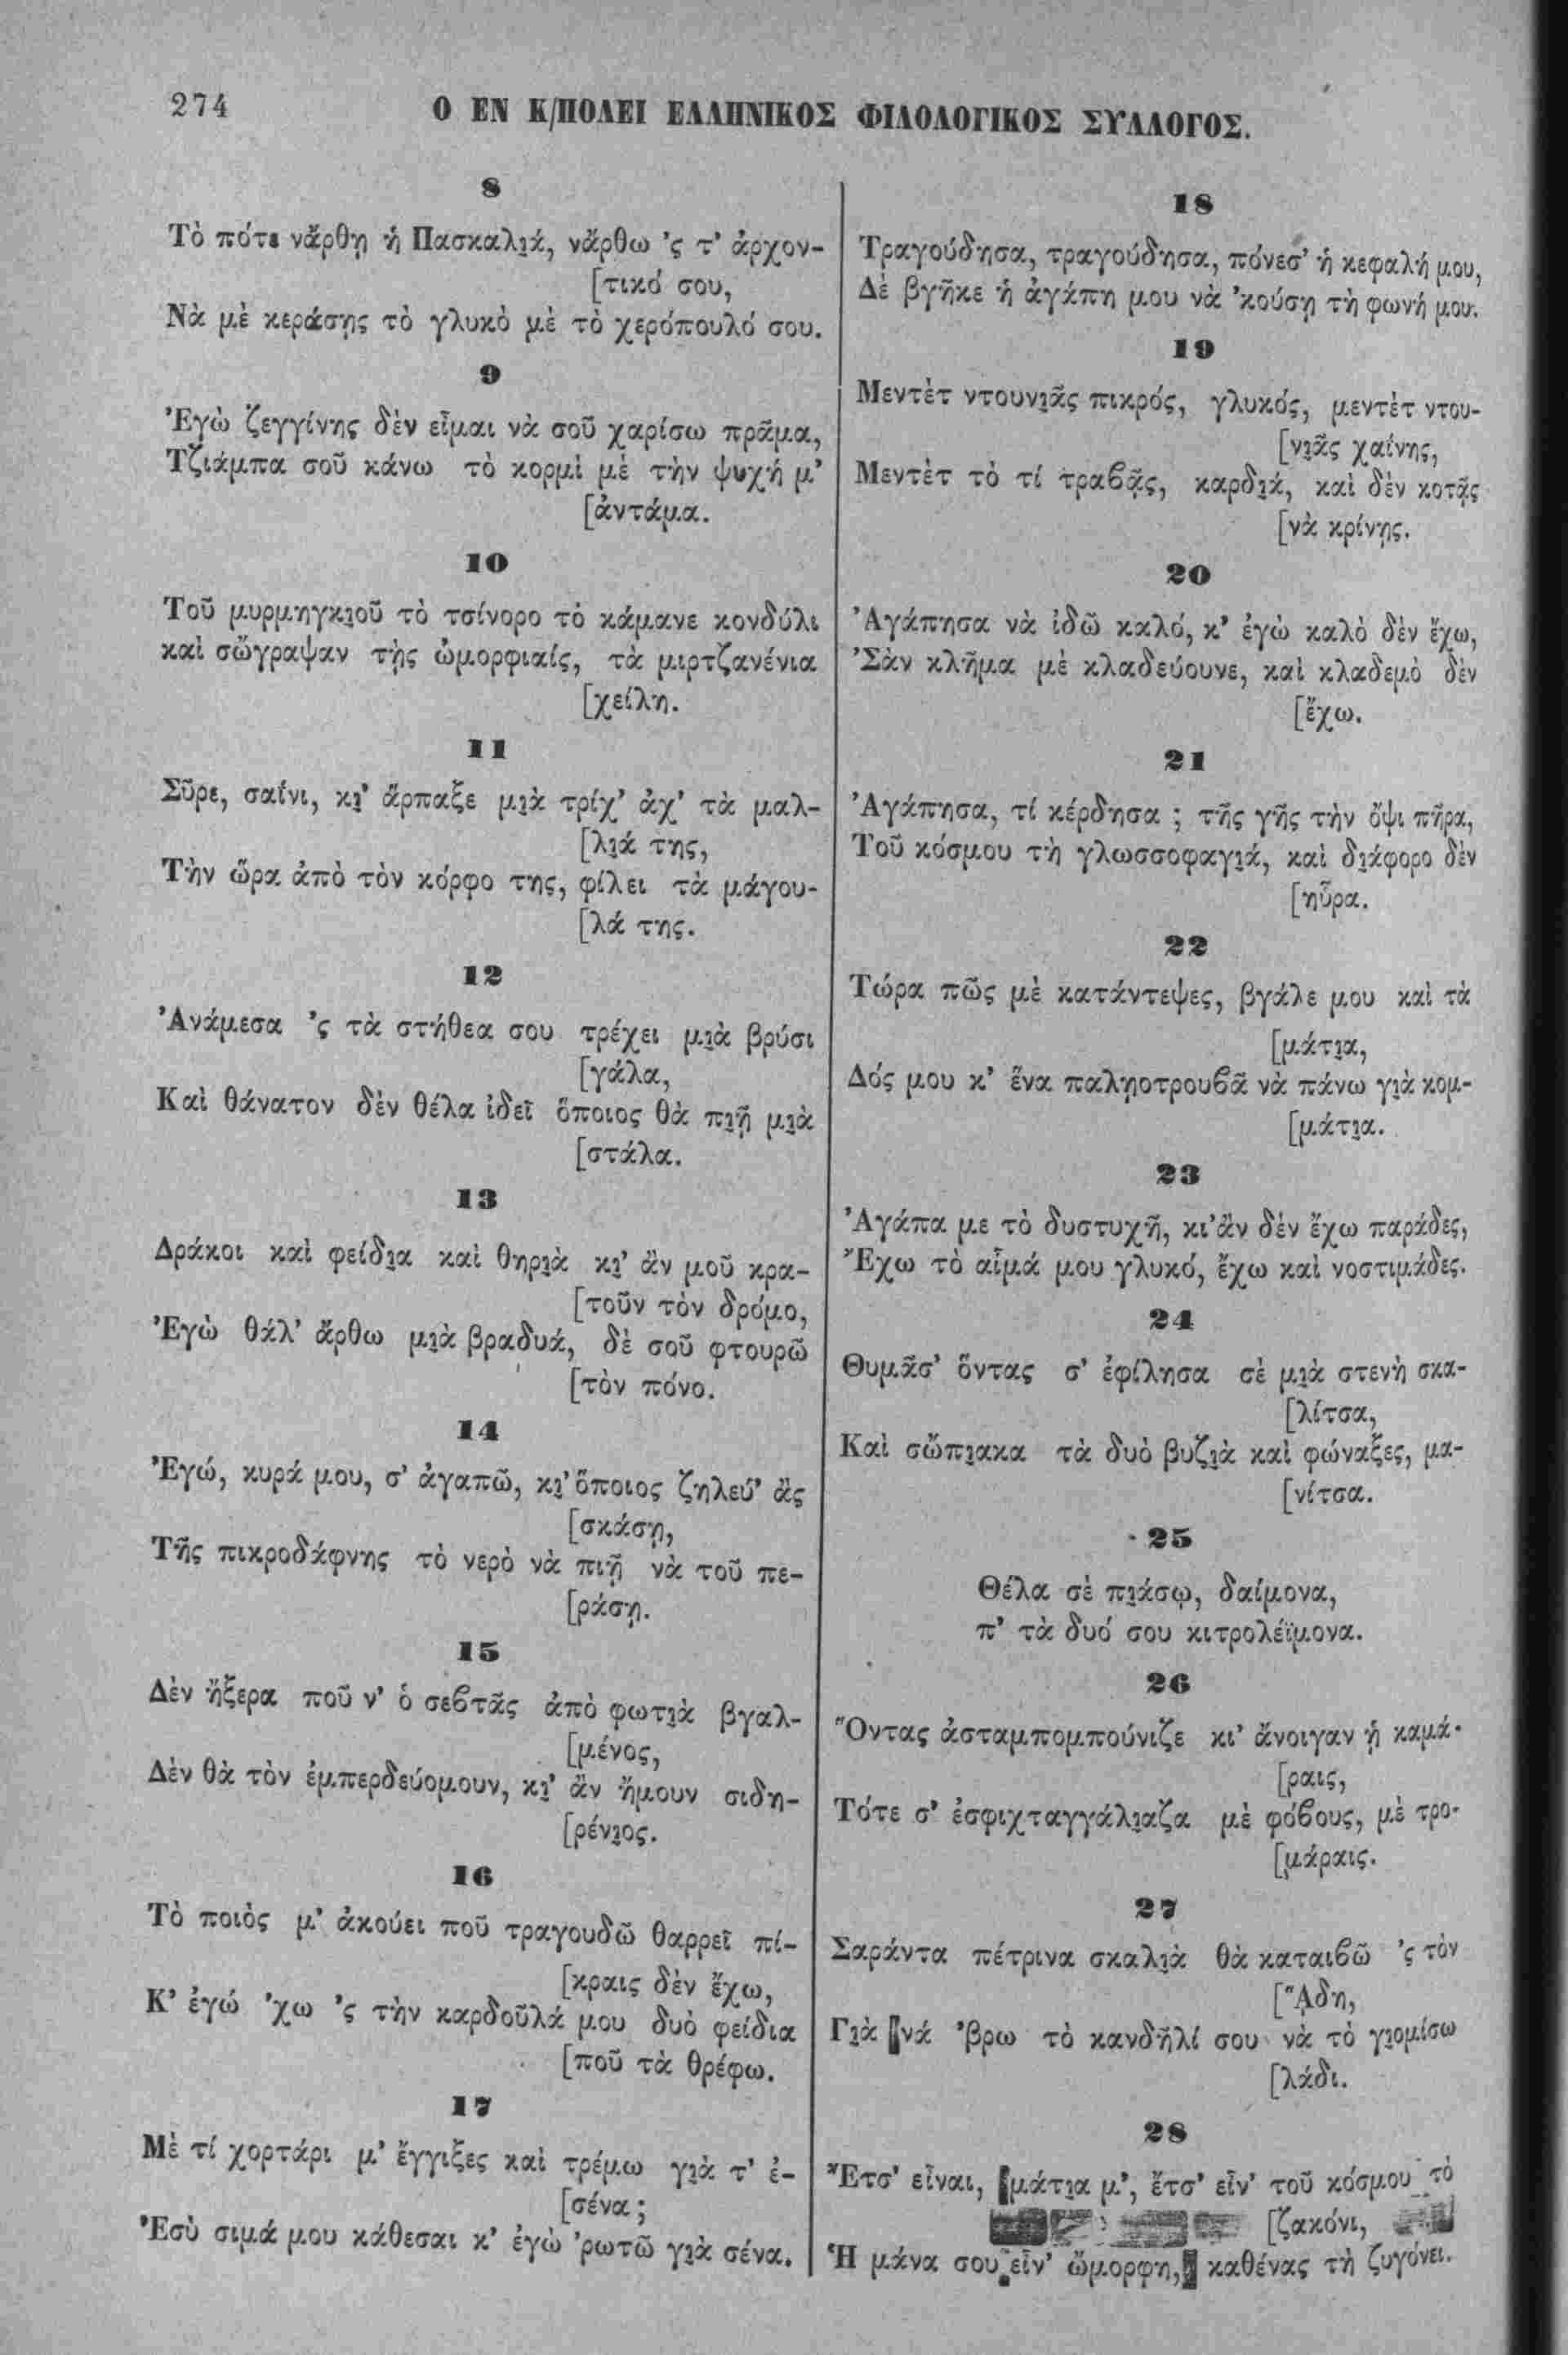 274
Ο ΕΝ Κ/ΠΟΛΕΙ ΕΛΛΗΝΙΚΟΣ ΦΙΛΟΛΟΓΙΚΟΣ ΣΥΛΛΟΓΟΣ.
8
Τὸ πότε νἄρθῃ ἡ Πασκαλι̯ά, νἄρθω 'ς τ' ἀρχον-
[τικό σου,
Νὰ μὲ κεράσῃς τὸ γλυκὸ μὲ τὸ χερόπουλό σου.
9
Ἐγὼ ζεγγίνης δὲν εἶμαι νὰ σοῦ χαρίσω πρᾶμα,
Τζιάμπα σοῦ κάνω τὸ κορμὶ μὲ τὴν ψυχή μ'
[ἀντάμα.
10
Τοῦ μυρμηγκι̯οῦ τὸ τσίνορο τὸ κάμανε κονδύλι
καὶ σὤγραψαν τῂς ὠμορφιαίς, τὰ μιρτζανένια
[χείλη.
11
Σῦρε, σαΐνι, κι̯' ἅρπαξε μι̯ὰ τρίχ' ἀχ' τὰ μαλ-
[λι̯ά της,
Τὴν ὥρα ἀπὸ τὸν κόρφο της, φίλει τὰ μάγου-
[λά της.
12
Ἀνάμεσα 'ς τὰ στήθεα σου τρέχει μι̯ὰ βρύσι
[γάλα,
Καὶ θάνατον δὲν θέλα ἰδεῖ ὅποιος θὰ πι̯ῇ μι̯ὰ
[στάλα.
13
Δράκοι καὶ φείδι̯α καὶ θηρι̯ὰ κι̯' ἂν μοῦ κρα-
[τοῦν τὸν δρόμο,
Ἐγὼ θάλ' ἄρθω μι̯ὰ βραδυά, δὲ σοῦ φτουρῶ
[τὸν πόνο.
14
Ἐγώ, κυρά μου, σ' ἀγαπῶ, κι̯' ὅποιος ζηλεύ' ἂς
[σκάσῃ,
Τῆς πικροδάφνης τὸ νερὸ νὰ πιῇ νὰ τοῦ πε-
[ράσῃ.
15
Δὲν ἤξερα ποῦ ν' ὁ σεβτᾶς ἀπὸ φωτι̯ὰ βγαλ-
[μένος,
Δὲν θὰ τὸν ἐμπερδεύομουν, κι̯' ἂν ἤμουν σιδη-
[ρένι̯ος.
16
Τὸ ποιὸς μ' ἀκούει ποῦ τραγουδῶ θαρρεῖ πί-
[κραις δὲν ἔχω,
Κ' ἐγώ 'χω 'ς τὴν καρδοῦλά μου δυὸ φείδια
[ποῦ τὰ θρέφω.
17
Μὲ τί χορτάρι μ' ἔγγιξες καὶ τρέμω γι̯ὰ τ' ἐ-
[σένα;
Ἐσὺ σιμά μου κάθεσαι κ' ἐγὼ 'ρωτῶ γι̯ὰ σένα.
18
Τραγούδησα, τραγούδησα, πόνεσ' ἡ κεφαλή μου,
Δὲ βγῆκε ἡ ἀγάπη μου νὰ 'κούσῃ τὴ φωνή μου.
19
Μεντὲτ ντουνι̯ᾶς πικρός, γλυκός, μεντὲτ ντου-
[νι̯ᾶς χαΐνης,
Μεντὲτ τὸ τί τραβᾷς, καρδι̯ά, καὶ δὲν κοτᾷς
[νὰ κρίνῃς.
20
Ἀγάπησα νὰ ἰδῶ καλό, κ' ἐγὼ καλὸ δὲν ἔχω,
Σὰν κλῆμα μὲ κλαδεύουνε, καὶ κλαδεμὸ δὲν
[ἔχω.
21
Ἀγάπησα, τί κέρδησα ; τῆς γῆς τὴν ὄψι πῆρα,
Τοῦ κόσμου τὴ γλωσσοφαγι̯ά, καὶ δι̯άφορο δὲν
[ηὗρα.
22
Τώρα πῶς μὲ κατάντεψες, βγάλε μου καὶ τὰ
[μάτι̯α,
Δός μου κ' ἕνα παλῃοτρουβᾶ νὰ πάνω γι̯ὰ κομ-
[μάτι̯α.
23
Ἀγάπα με τὸ δυστυχῆ, κι' ἂν δὲν ἔχω παράδες,
Ἔχω τὸ αἷμά μου γλυκό, ἔχω καὶ νοστιμάδες.
24
Θυμᾶσ' ὅντας σ' ἐφίλησα σὲ μι̯ὰ στενὴ σκα-
[λίτσα,
Καὶ σὤπι̯ακα τὰ δυὸ βυζι̯ὰ καὶ φώναξες, μα-
[νίτσα.
25
Θέλα σὲ πι̯άσῳ, δαίμονα,
π' τὰ δυό σου κιτρολέϊμονα.
26
Ὅντας ἀσταμπομπούνιζε κι' ἄνοιγαν ᾑ καμά-
[ραις,
Τότε σ' ἐσφιχταγγάλι̯αζα μὲ φόβους, μὲ τρο-
[μάραις.
27
Σαράντα πέτρινα σκαλι̯ὰ θὰ καταιβῶ 'ς τὸν
[ᾍδη,
Γι̯ὰ νά 'βρω τὸ κανδῆλί σου νὰ τὸ γι̯ομίσω
[λάδι.
28
Ἔτσ' εἶναι, μάτι̯α μ', ἔτσ' εἶν' τοῦ κόσμου τὸ
[ζακόνι,
Ἡ μάνα σου εἶν' ὤμορφη, καθένας τὴ ζυγόνει.